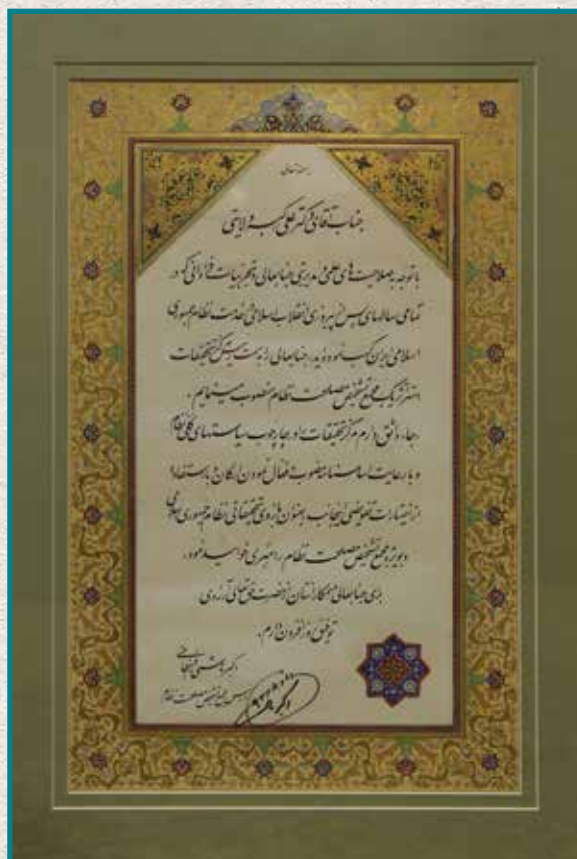 بسمه تعالی
جناب آقای دکتر علی اکبر ولایتی
با توجه به صلاحیت های علمی و مدیریتی جنابعالی و تجربیات فراوانی که در
تمامی سالهای پس از پیروزی انقلاب اسلامی در خدمت نظام جمهوری
اسلامی ایران کسب نموده اید، جنابعالی را به سمت رییس مرکز تحقیقات
استراتژیک مجمع تشخیص مصلحت نظام منصوب مینمایم.
رجاء واثق دارم مرکز تحقیقات را در چارچوب سیاستهای کلی نظام
و با رعایت اساسنامه مصوب و فعال نمودن ارکان و با استفاده
از اختیارات تفویضی اینجانب بعنوان بازوی تحقیقاتی نظام جمهوری اسلامی
و بویژه مجمع تشخیص مصلحت نظام راهبری خواهید نمود.
برای جنابعالی و همکارانتان از حضرت حق تعالی آرزوی
توفیق روزافزون دارم.
اکبر هاشمی رفسنجانی
رییس مجمع تشخیص مصلحت نظام